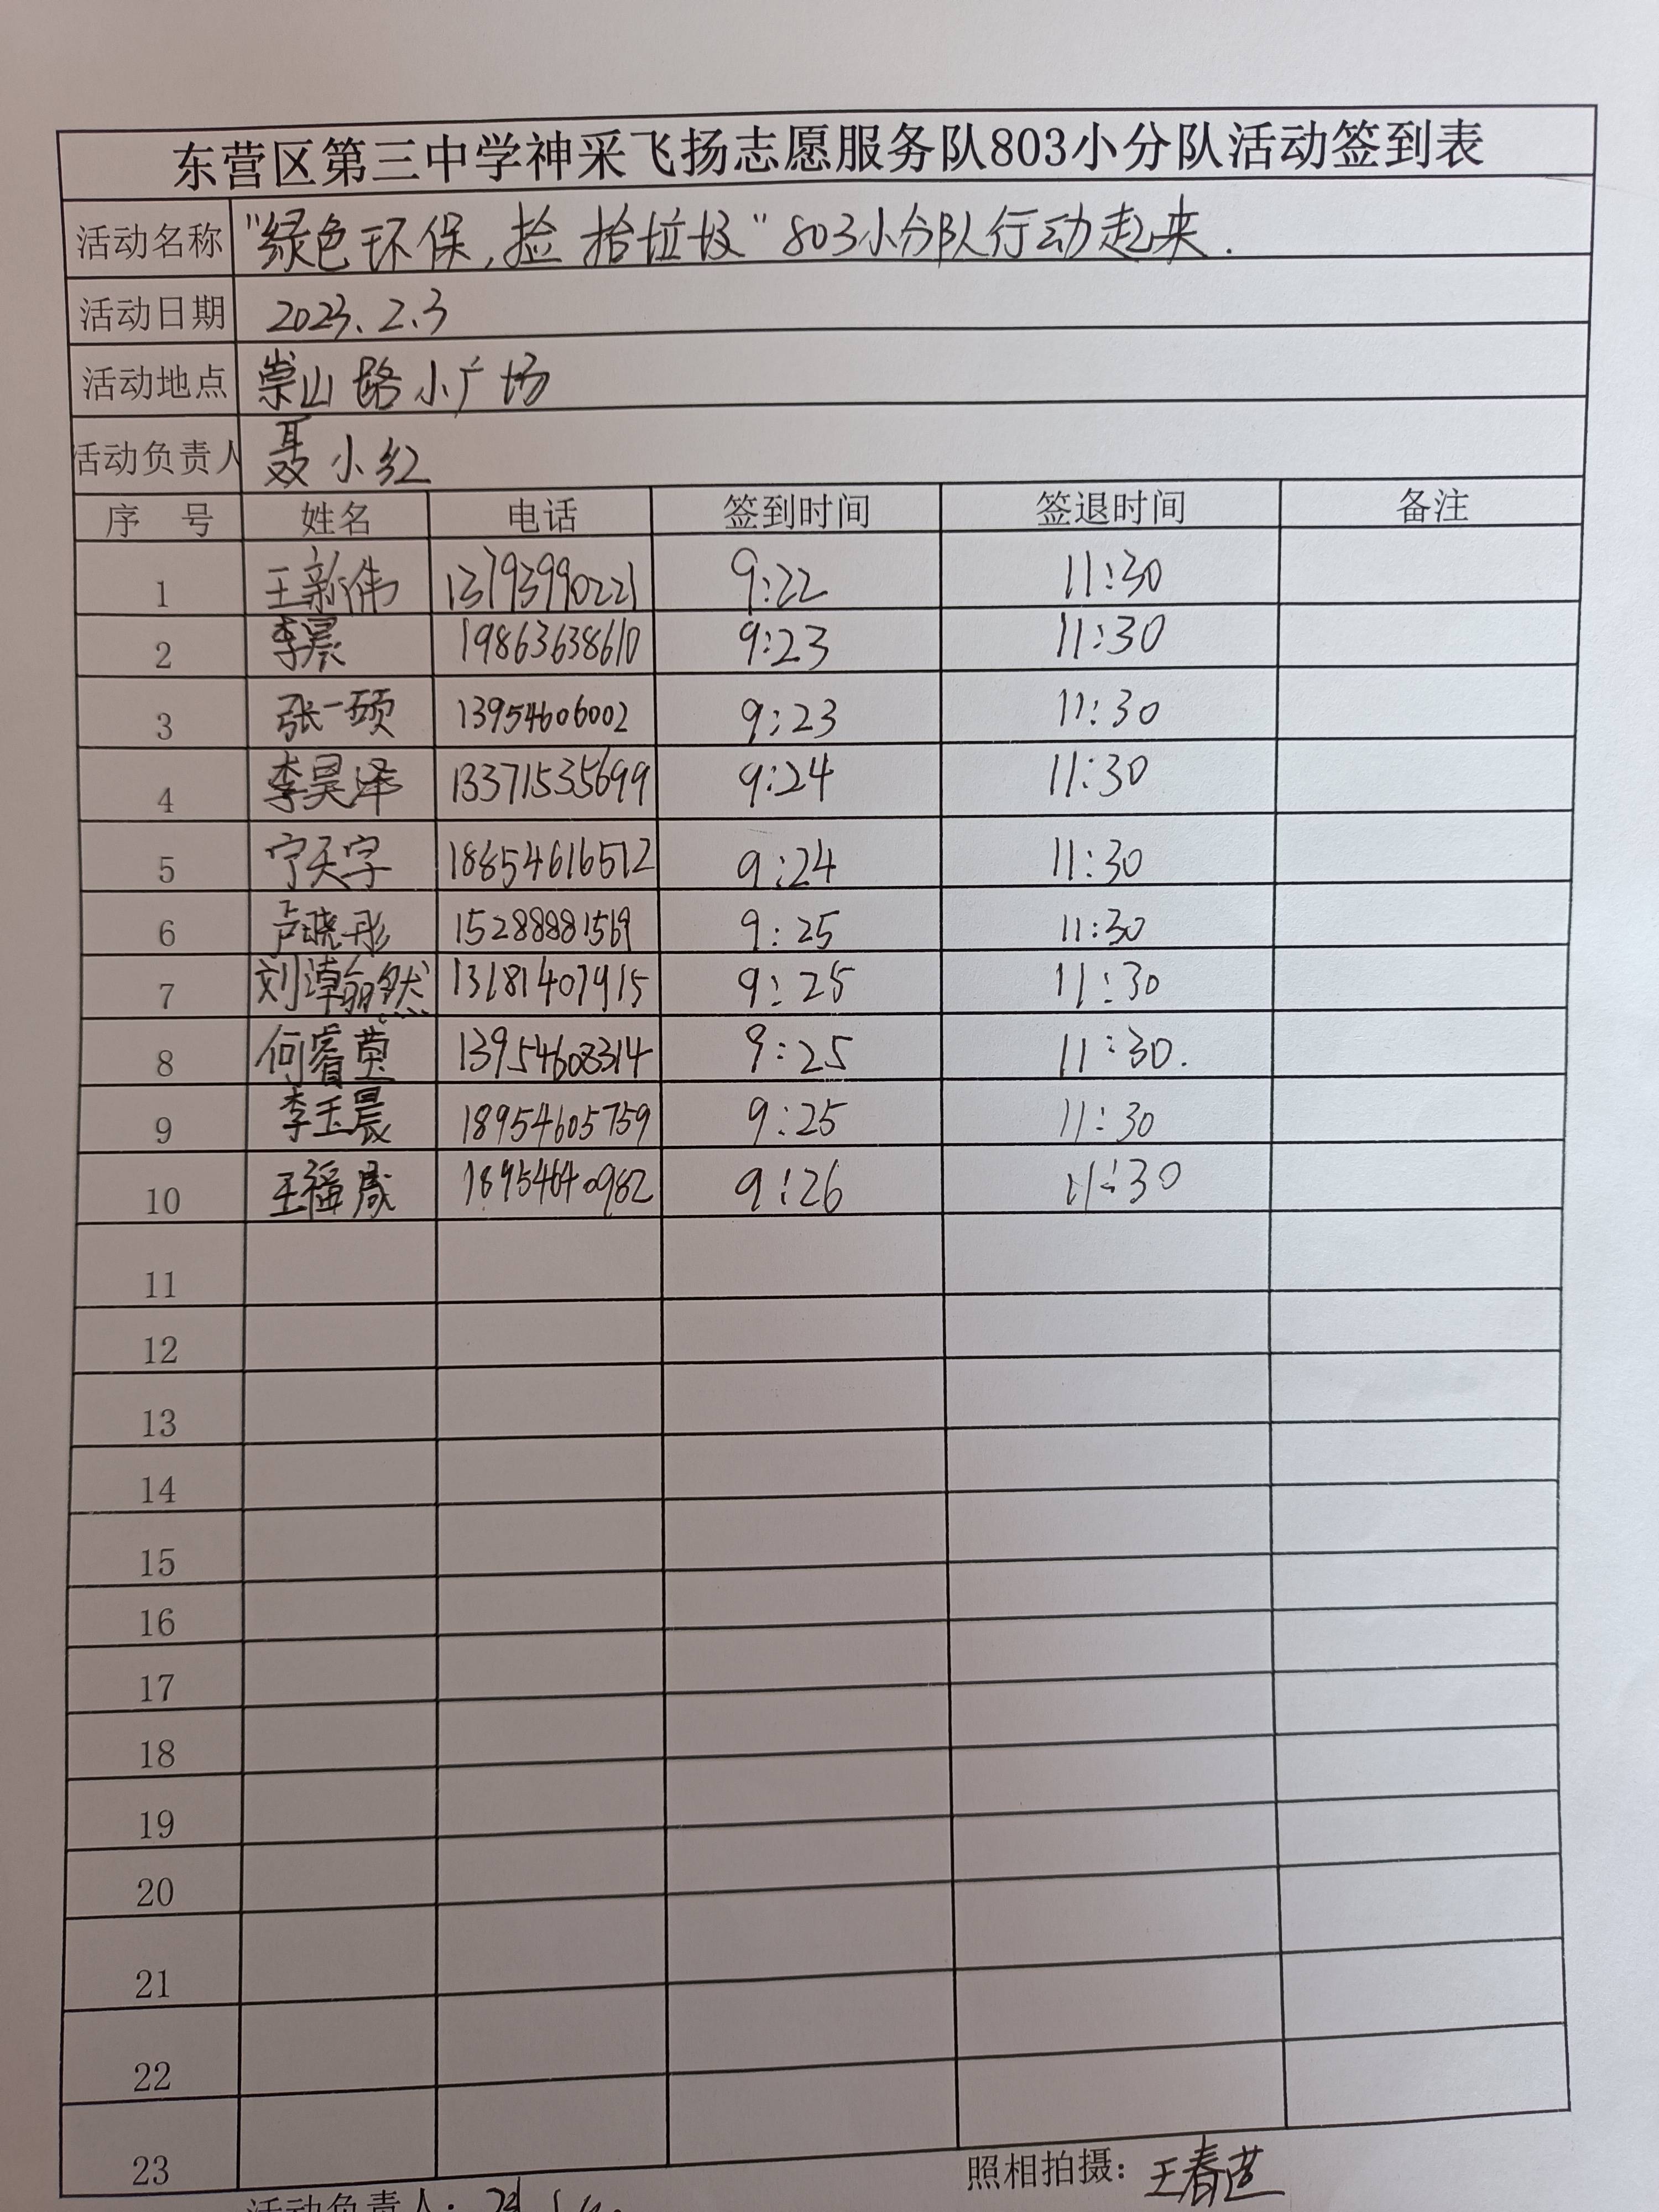 东营区第三中学神采飞扬志愿服务队803小分队活动签到表
活动名称 "绿色环保,捡拾垃圾"803小分队行动起来.
活动日期 2023.2.3
活动地点 崇山路小广场
活动负责人 聂小红
序 号 姓名 电话 签到时间 签退时间 备注
1 王新伟 13793990221 9:22 11:30
2 李晨 19863638610 9:23 11:30
3 张一硕 13954606002 9:23 11:30
4 李昊泽 13371535699 9:24 11:30
5 宁天宇 18854616512 9:24 11:30
6 卢晓彤 15288881569 9:25 11:30
7 刘 然 13181407915 9:25 11:30
8 何睿 13954608314 9:25 11:30.
9 李玉晨 18954605759 9:25 11:30
10 王福晟 18954640982 9:26 11:30
11
12
13
14
15
16
17
18
19
20
21
22
23
照相拍摄: 王春
活动负责人: